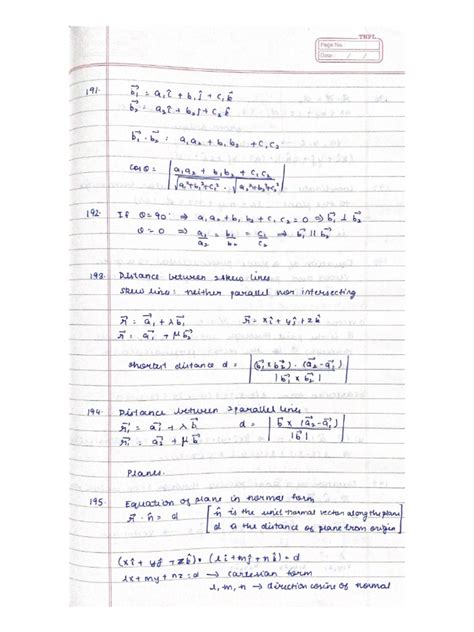 TNPL
Page No.
Date / /
191. b₁⃗ = a₁î + b₁ĵ + c₁k̂
b₂⃗ = a₂î + b₂ĵ + c₂k̂
b₁⃗ · b₂⃗ = a₁a₂ + b₁b₂ + c₁c₂
cosθ = | (a₁a₂ + b₁b₂ + c₁c₂) / (√(a₁²+b₁²+c₁²) · √(a₂²+b₂²+c₂²)) |
192. If θ = 90° ⇒ a₁a₂ + b₁b₂ + c₁c₂ = 0 ⇒ b₁⃗ ⊥ b₂⃗
θ = 0 ⇒ a₁/a₂ = b₁/b₂ = c₁/c₂ ⇒ b₁⃗ || b₂⃗
193. Distance between 2 skew lines
skew lines: neither parallel nor intersecting
r⃗ = a₁⃗ + λb₁⃗ r⃗ = xî + yĵ + zk̂
r⃗ = a₂⃗ + μb₂⃗
shortest distance d = | (b₁⃗ × b₂⃗) · (a₂⃗ - a₁⃗) / |b₁⃗ × b₂⃗| |
194. Distance between 2 parallel lines
r₁⃗ = a₁⃗ + λb⃗ d = | b⃗ × (a₂⃗ - a₁⃗) / |b⃗| |
Planes.
195. Equation of plane in normal form
r⃗ · n̂ = d [ n̂ is the unit normal vector along the plane
d is the distance of plane from origin ]
(xî + yĵ + zk̂) • (lî + mĵ + nk̂) = d
lx + my + nz = d → cartesian form
l, m, n → direction cosine of normal